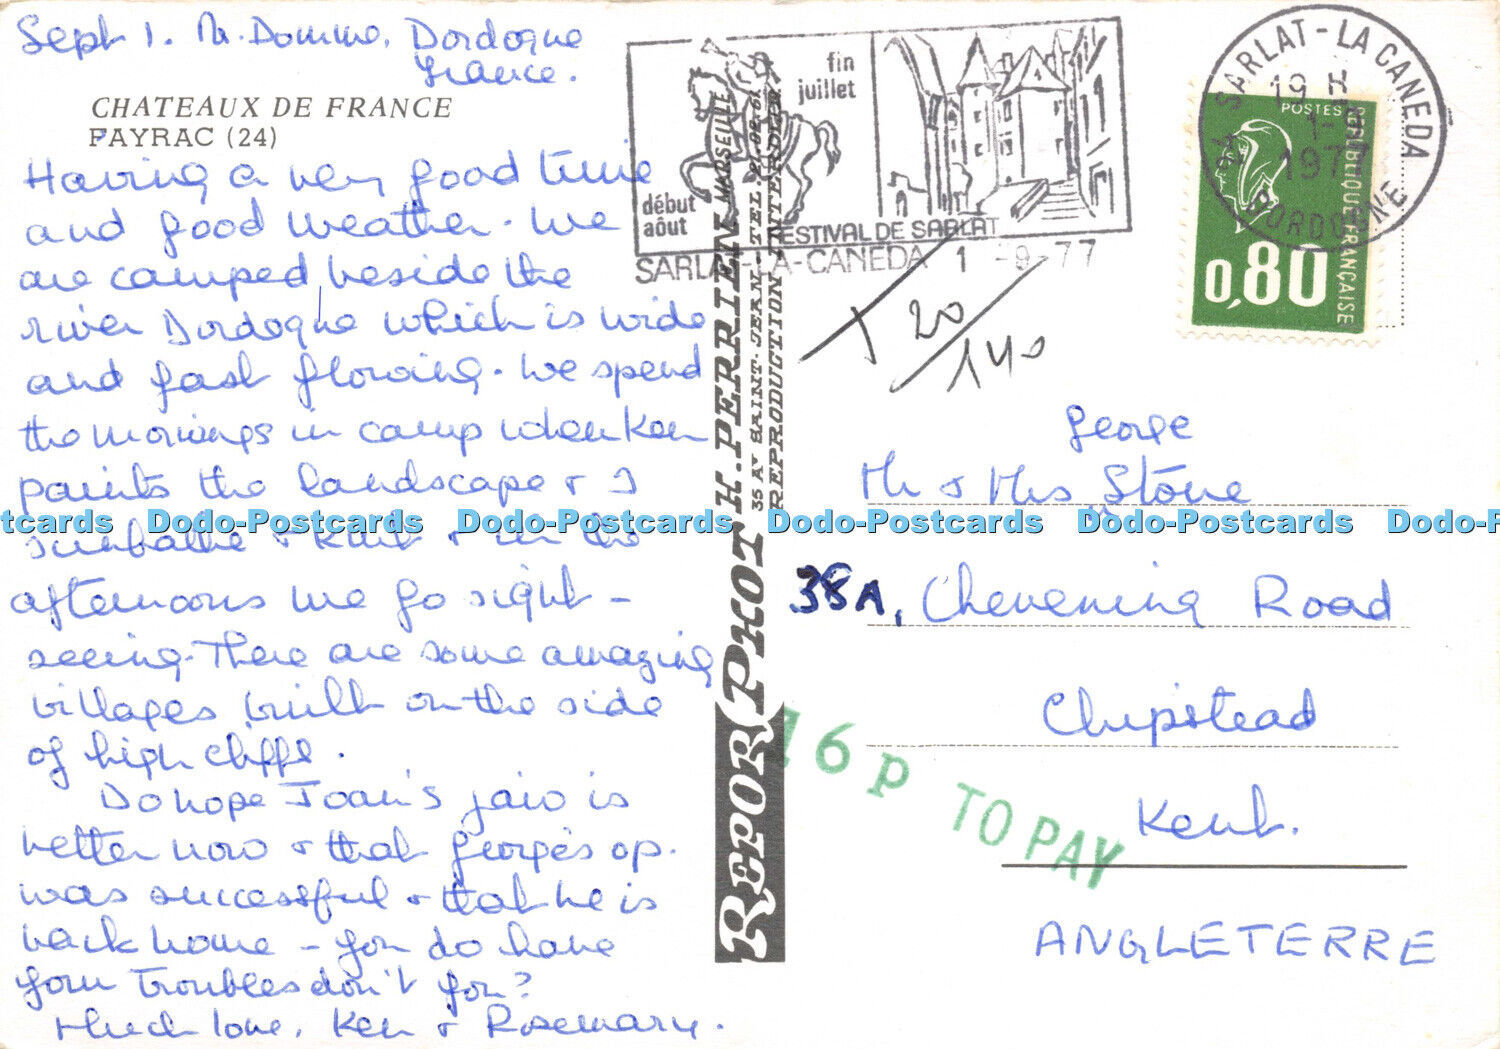 Sept 1. Nr. Domme, Dordogne
France.
CHATEAUX DE FRANCE
FAYRAC (24)
Having a very good time
and good weather. We
are camped beside the
river Dordogne which is wide
and fast flowing. We spend
the mornings in camp when Ken
paints the landscape + I
sunbathe + knit + in the
afternoons we go sight-
seeing. There are some amazing
villages built on the side
of high cliffs.
Do hope Joan's jaw is
better now + that George's op.
was successful + that he is
back home - you do have
your troubles don't you?
Much love, Ken + Rosemary.
fin
juillet
début
août
FESTIVAL DE SARLAT
SARLAT-LA-CANEDA 1 -9-77
T 20/140
SARLAT-LA CANEDA
19 H
1-9
1977
DORDOGNE
POSTES
REPUBLIQUE FRANÇAISE
0,80
REPOR PHOT H. PERRIEN MARSEILLE
35 Av SAINT-JEAN - TEL.
REPRODUCTION INTERDITE
George
Mr + Mrs Stone
38A, Chevening Road
Chipstead
Kent.
ANGLETERRE
16p TO PAY
Dodo-Postcards Dodo-Postcards Dodo-Postcards Dodo-Postcards